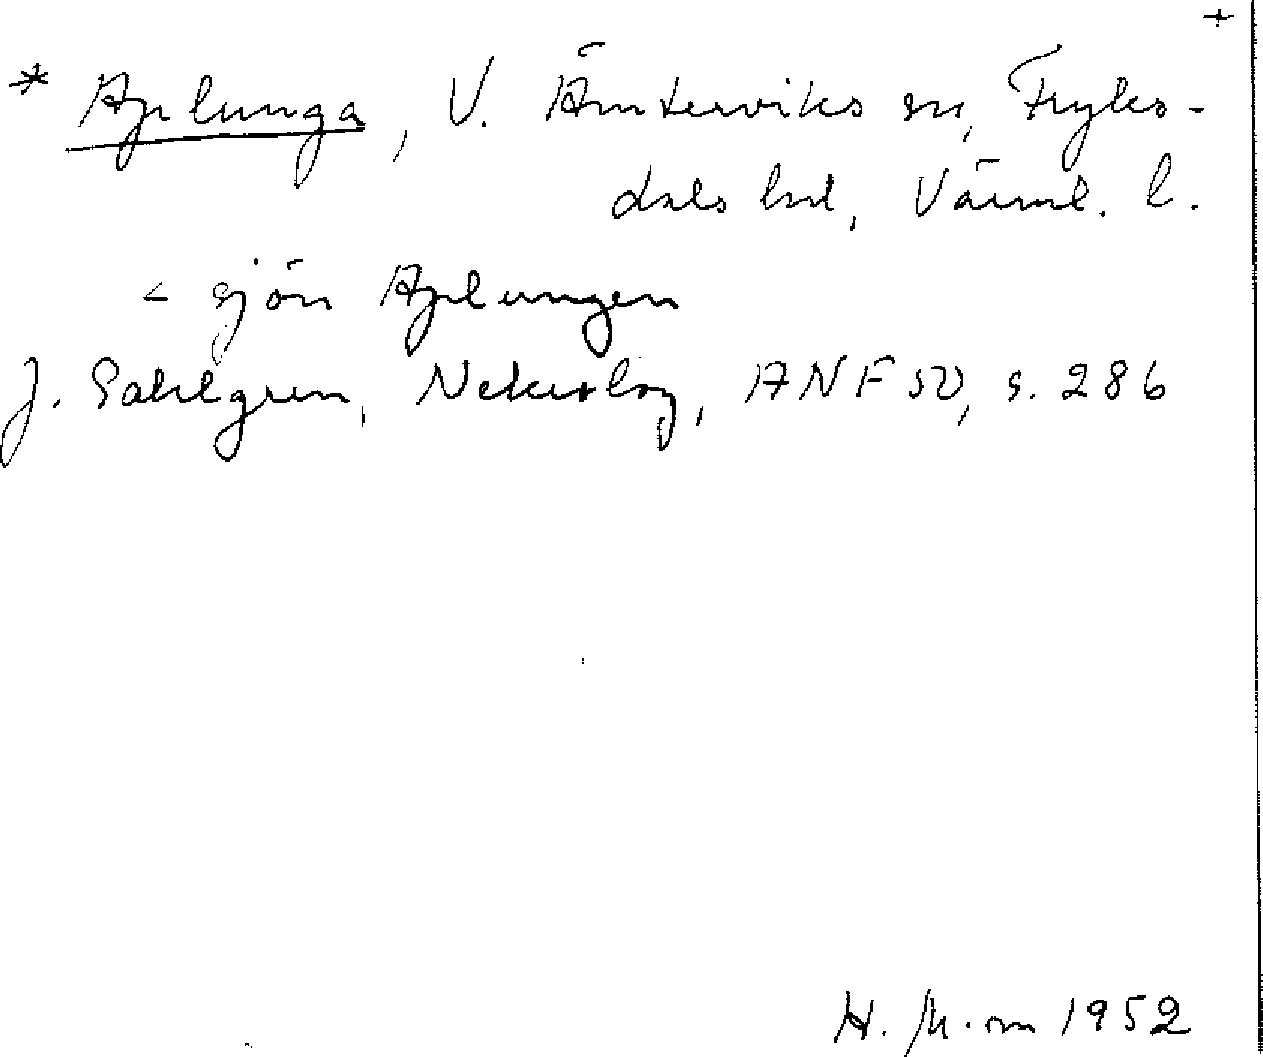 +
* Aplunga, V. Ämterviks sn, Fryks-
dals hd, Värml. l.
< sjön Aplungen
J. Sahlgren, Nekrolog, ANF 50, s. 286
H. M:on 1952